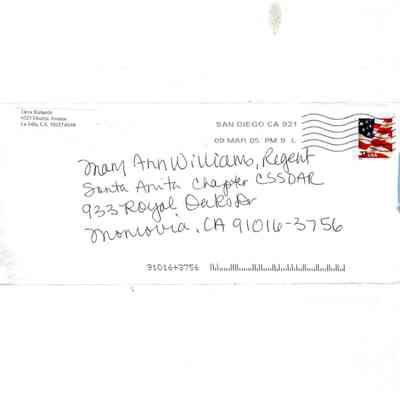 La Jolla, CA
SAN DIEGO CA 921
09 MAR 05 PM 9 L
USA
Mary Ann Williams, Regent
Santa Anita Chapter CSSDAR
933 Royal Oaks Dr
Monrovia, CA 91016-3756
91016+3756